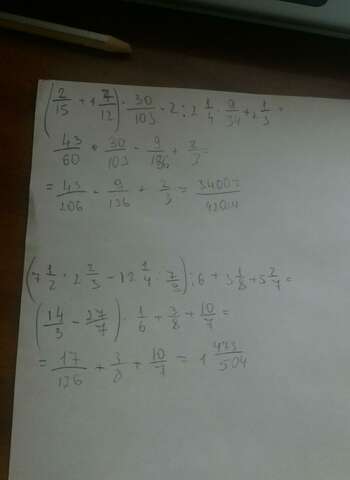 (2/15 + 1 7/12) · 30/103 · 2 : 2 1/4 · 9/34 + 2 1/3 =
43/60 · 30/103 - 9/186 + 2/3 =
= 43/206 - 9/136 + 2/3 = 34007/42024
(7 1/2 · 2 2/3 - 12 1/4 · 7/9) : 6 + 3 1/8 + 5 2/7 =
(14/3 - 27/7) · 1/6 + 3/8 + 10/7 =
= 17/126 + 3/8 + 10/7 = 1 473/504